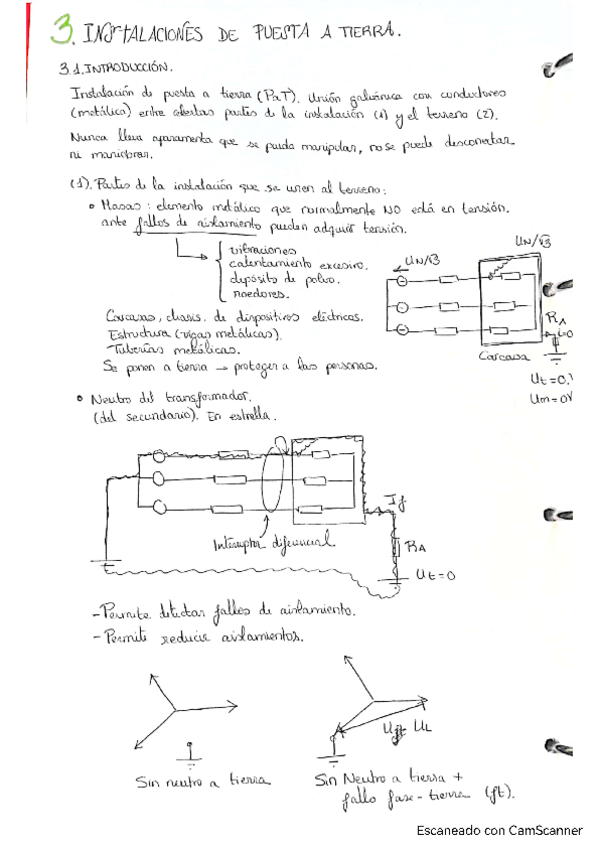 3. INSTALACIONES DE PUESTA A TIERRA.
3.1. INTRODUCCIÓN.
Instalación de puesta a tierra (PaT). Unión galvánica con conductores
(metálica) entre ciertas partes de la instalación (1) y el terreno (2).
Nunca lleva aparamenta que se pueda manipular, no se puede desconectar
ni maniobrar.
(1). Partes de la instalación que se unen al terreno:
• Masas: elemento metálico que normalmente NO está en tensión.
ante fallos de aislamiento pueden adquirir tensión.
vibraciones
calentamiento excesivo.
depósito de polvo.
roedores.
UN/√3
UN/√3
RA
i=0
Carcasa
Ut=0.V
Um=0V
Carcasas, chasis de dispositivos eléctricos.
Estructura (vigas metálicas).
Tuberías metálicas.
Se ponen a tierra → proteger a las personas.
• Neutro del transformador.
(del secundario). En estrella.
If
Interruptor diferencial
RA
Ut=0
- Permite detectar fallos de aislamiento.
- Permite reducir aislamientos.
UL
Sin neutro a tierra
Sin Neutro a tierra +
fallo fase-tierra (ft).
Escaneado con CamScanner